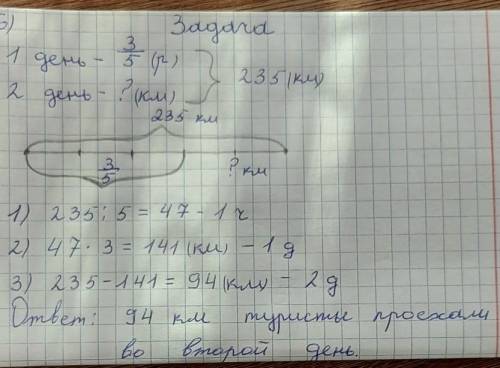 б) Задача
1 день - 3/5 (р)
2 день - ? (км) } 235 (км)
235 км
3/5 ? км
1) 235 : 5 = 47 - 1 ч
2) 47 · 3 = 141 (км) - 1 д
3) 235 - 141 = 94 (км) - 2 д
Ответ: 94 км туристы проехали
во второй день.